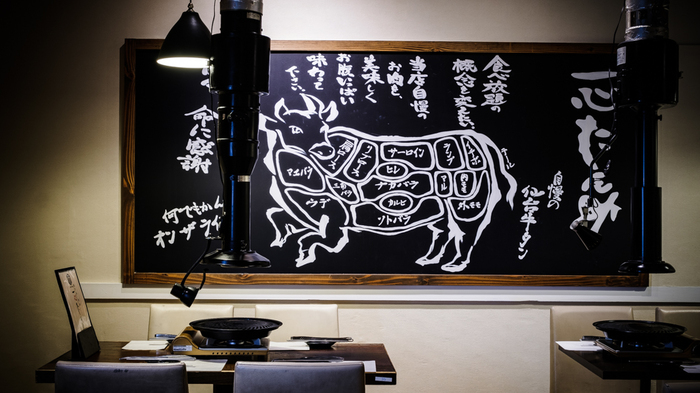 自慢の
仙台牛タン
食べ放題の
概念を変えたい
当店自慢の
お肉を、
美味しく
お腹いっぱい
味わって
下さい。
命に感謝
何でもかん
オンザライ
肩ロース
リブロース
サーロイン
ランプ
イチボ
テール
ヒレ
マエバラ
三角バラ
ナカバラ
マル
内モモ
外モモ
ウデ
カルビ
ソトバラ